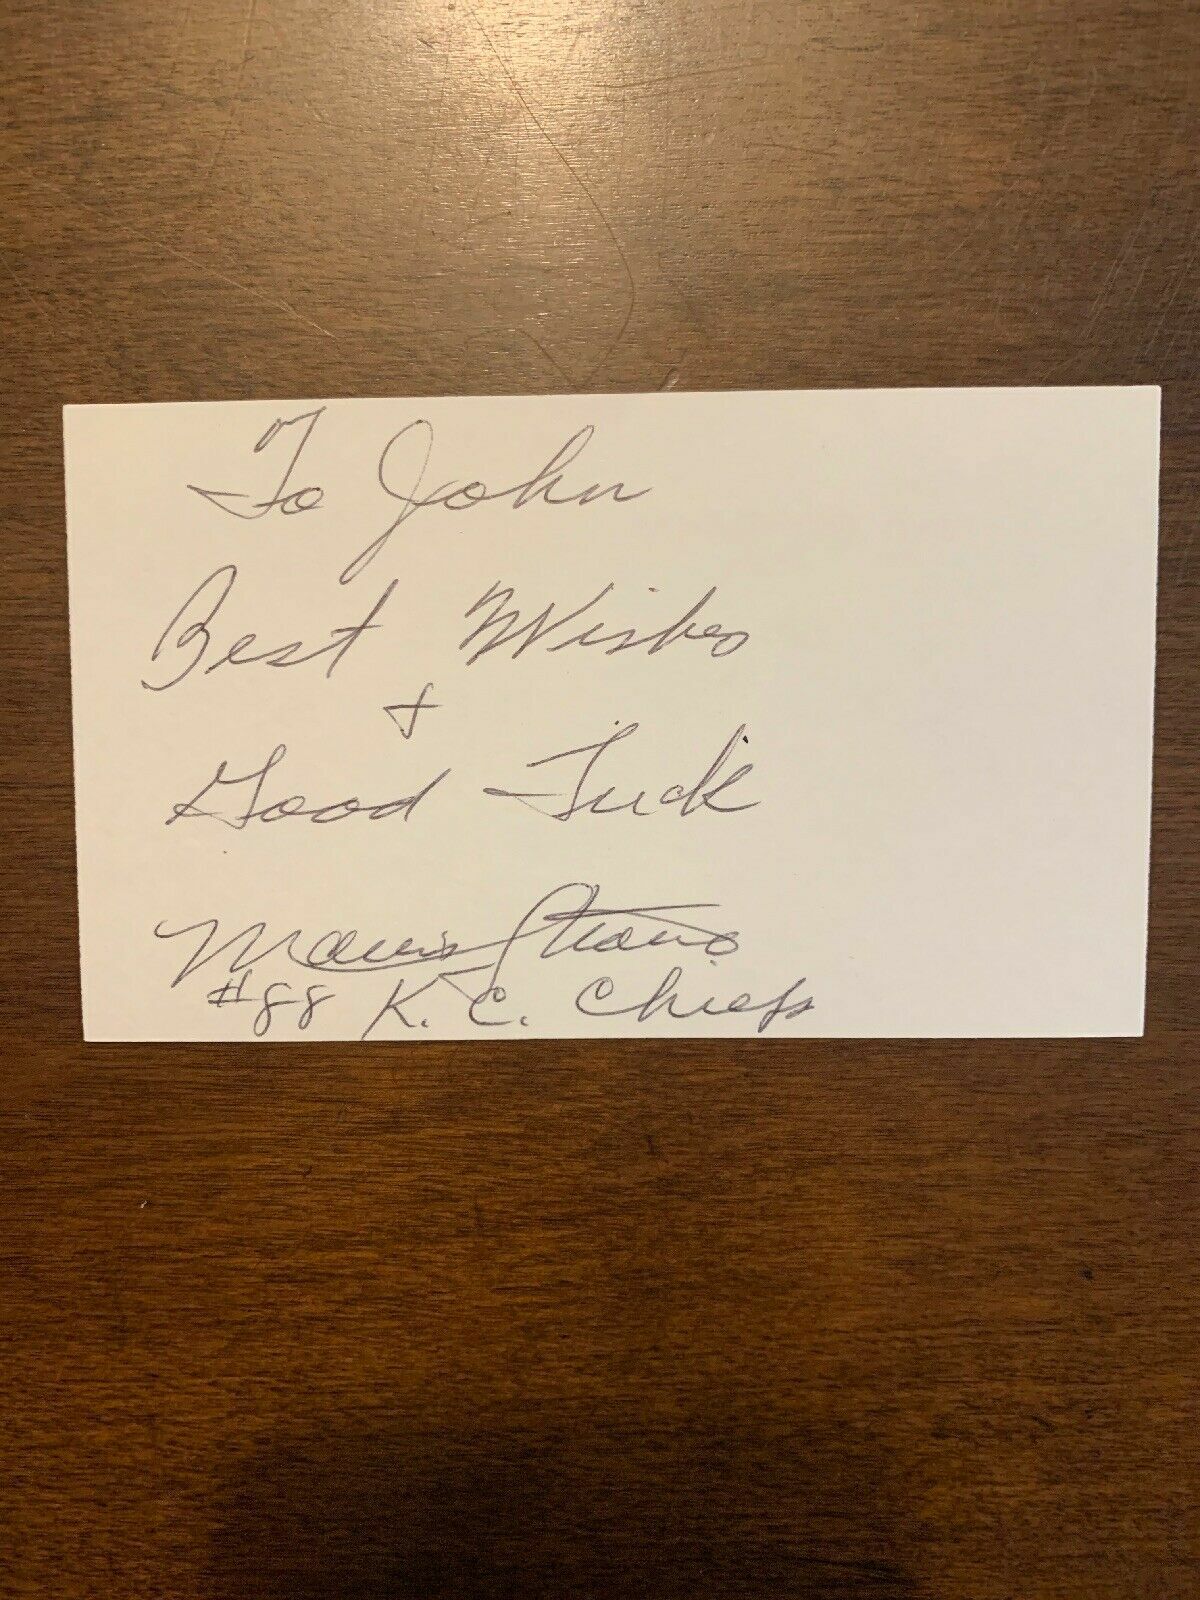 To John
Best Wishes
+
Good Luck
Morris Stroud
#88 K.C. Chiefs